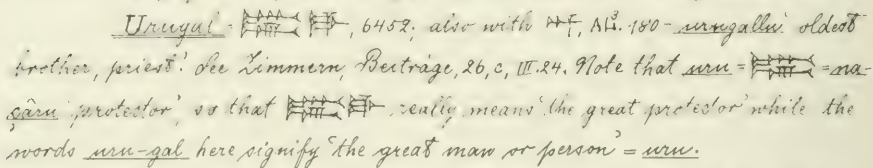 Urugal - 𒋀 𒃲, 6452; also with 𒀭, AL³. 180 - urugallu 'oldest
brother, priest'. See Zimmern, Beiträge, 26, c, III.24. Note that uru = 𒋀 = na-
ç̂âru 'protector', so that 𒋀𒃲 really means 'the great protector' while the
words uru-gal here signify 'the great man or person' = uru.